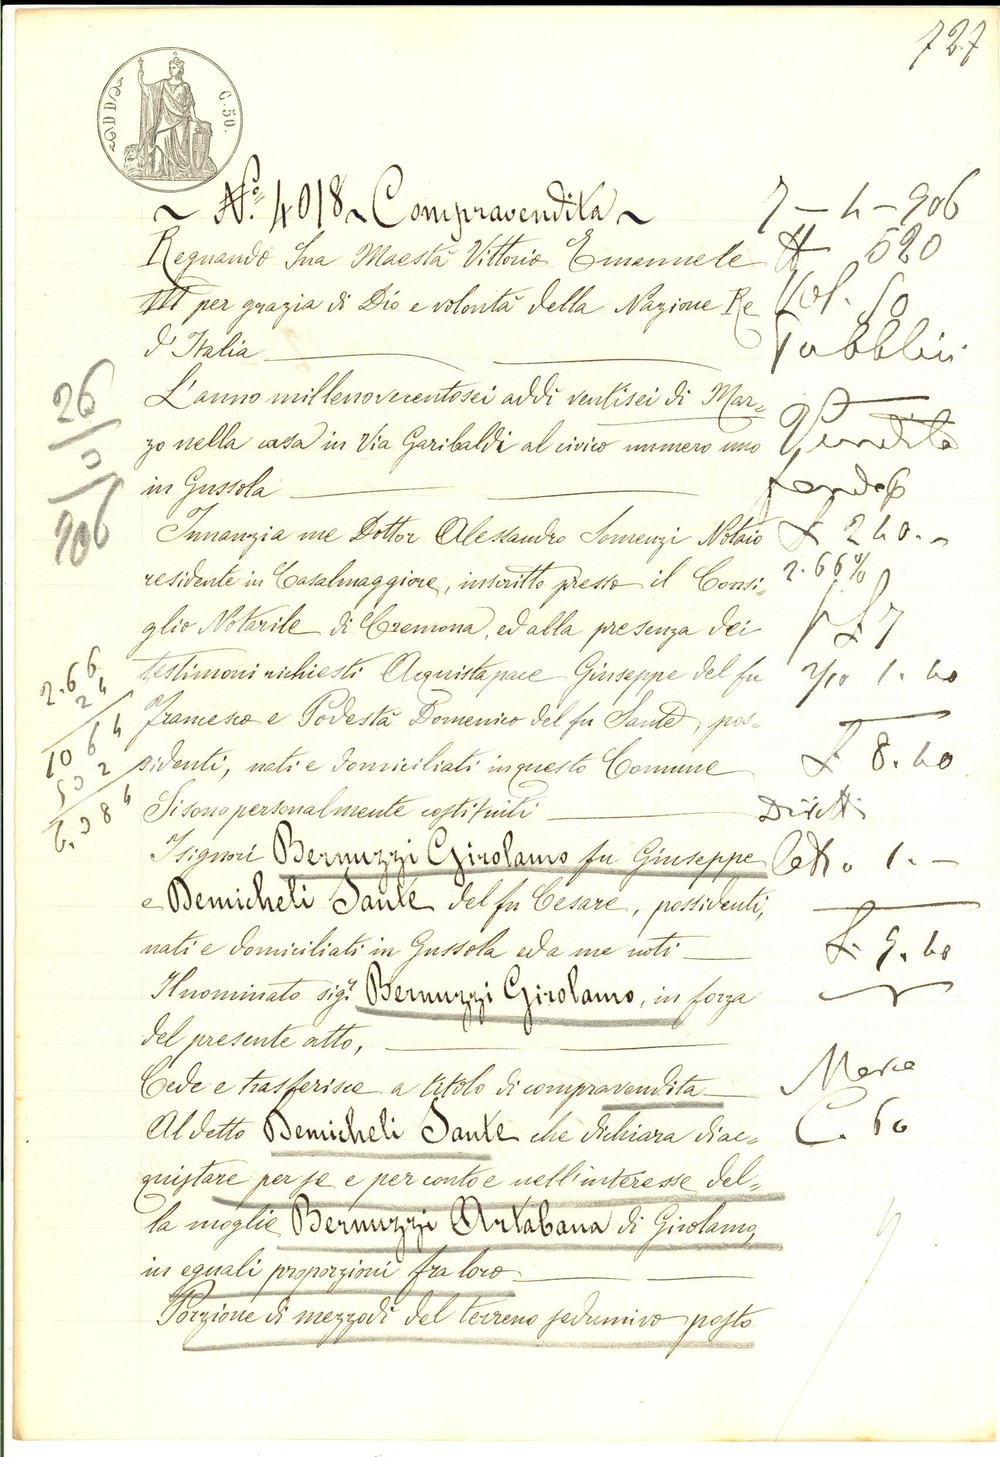 727
C. 50.
~ N.º 4018 ~ Compravendita ~
Regnando Sua Maestà Vittorio Emanuele
III per grazia di Dio e volontà della Nazione Re
d'Italia
L'anno millenovecentosei addì ventisei di Mar=
zo nella casa in Via Garibaldi al civico numero uno
in Gussola
Innanzi a me Dottor Alessandro Somenzi Notaio
residente in Casalmaggiore, inscritto presso il Consi=
glio Notarile di Cremona, ed alla presenza dei
testimoni richiesti Acquistapace Giuseppe del fu
Francesco e Podestà Domenico del fu Sante, pos=
sidenti, nati e domiciliati in questo Comune
Si sono personalmente costituiti
I signori Bernuzzi Girolamo fu Giuseppe
e Demicheli Sante del fu Cesare, possidenti,
nati e domiciliati in Gussola ed a me noti
Il nominato sig.r Bernuzzi Girolamo, in forza
del presente atto,
Cede e trasferisce a titolo di compravendita
Al detto Demicheli Sante che dichiara di ac=
quistare per se e per conto e nell'interesse del=
la moglie Bernuzzi Artabana di Girolamo,
in eguali proporzioni fra loro
Porzione di mezzodì del terreno sedumivo posto
7 - 4 - 906
# 520
Vol. 50
Pubblici
Vendita
£ 240. -
2.66%
£ 7
2/10 1. 40
£ 8. 40
Diritti
1. -
£. 9. 40
C. 60
26
906
2.66
24
10 64
53 2
6.384